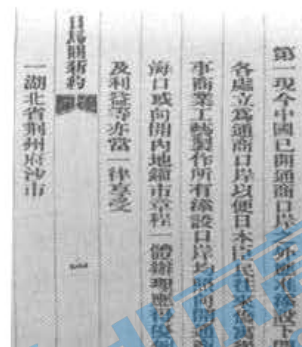 第一現今中國已開通商口岸之外應准添設下開
各處立為通商口岸以便日本臣民往來僑寓從
事商業工藝製作所有添設口岸均照向開通商
海口或向開內地鎮市章程一體辦理應得優例
及利益等亦當一律享受
馬關新約
一湖北省荊州府沙市